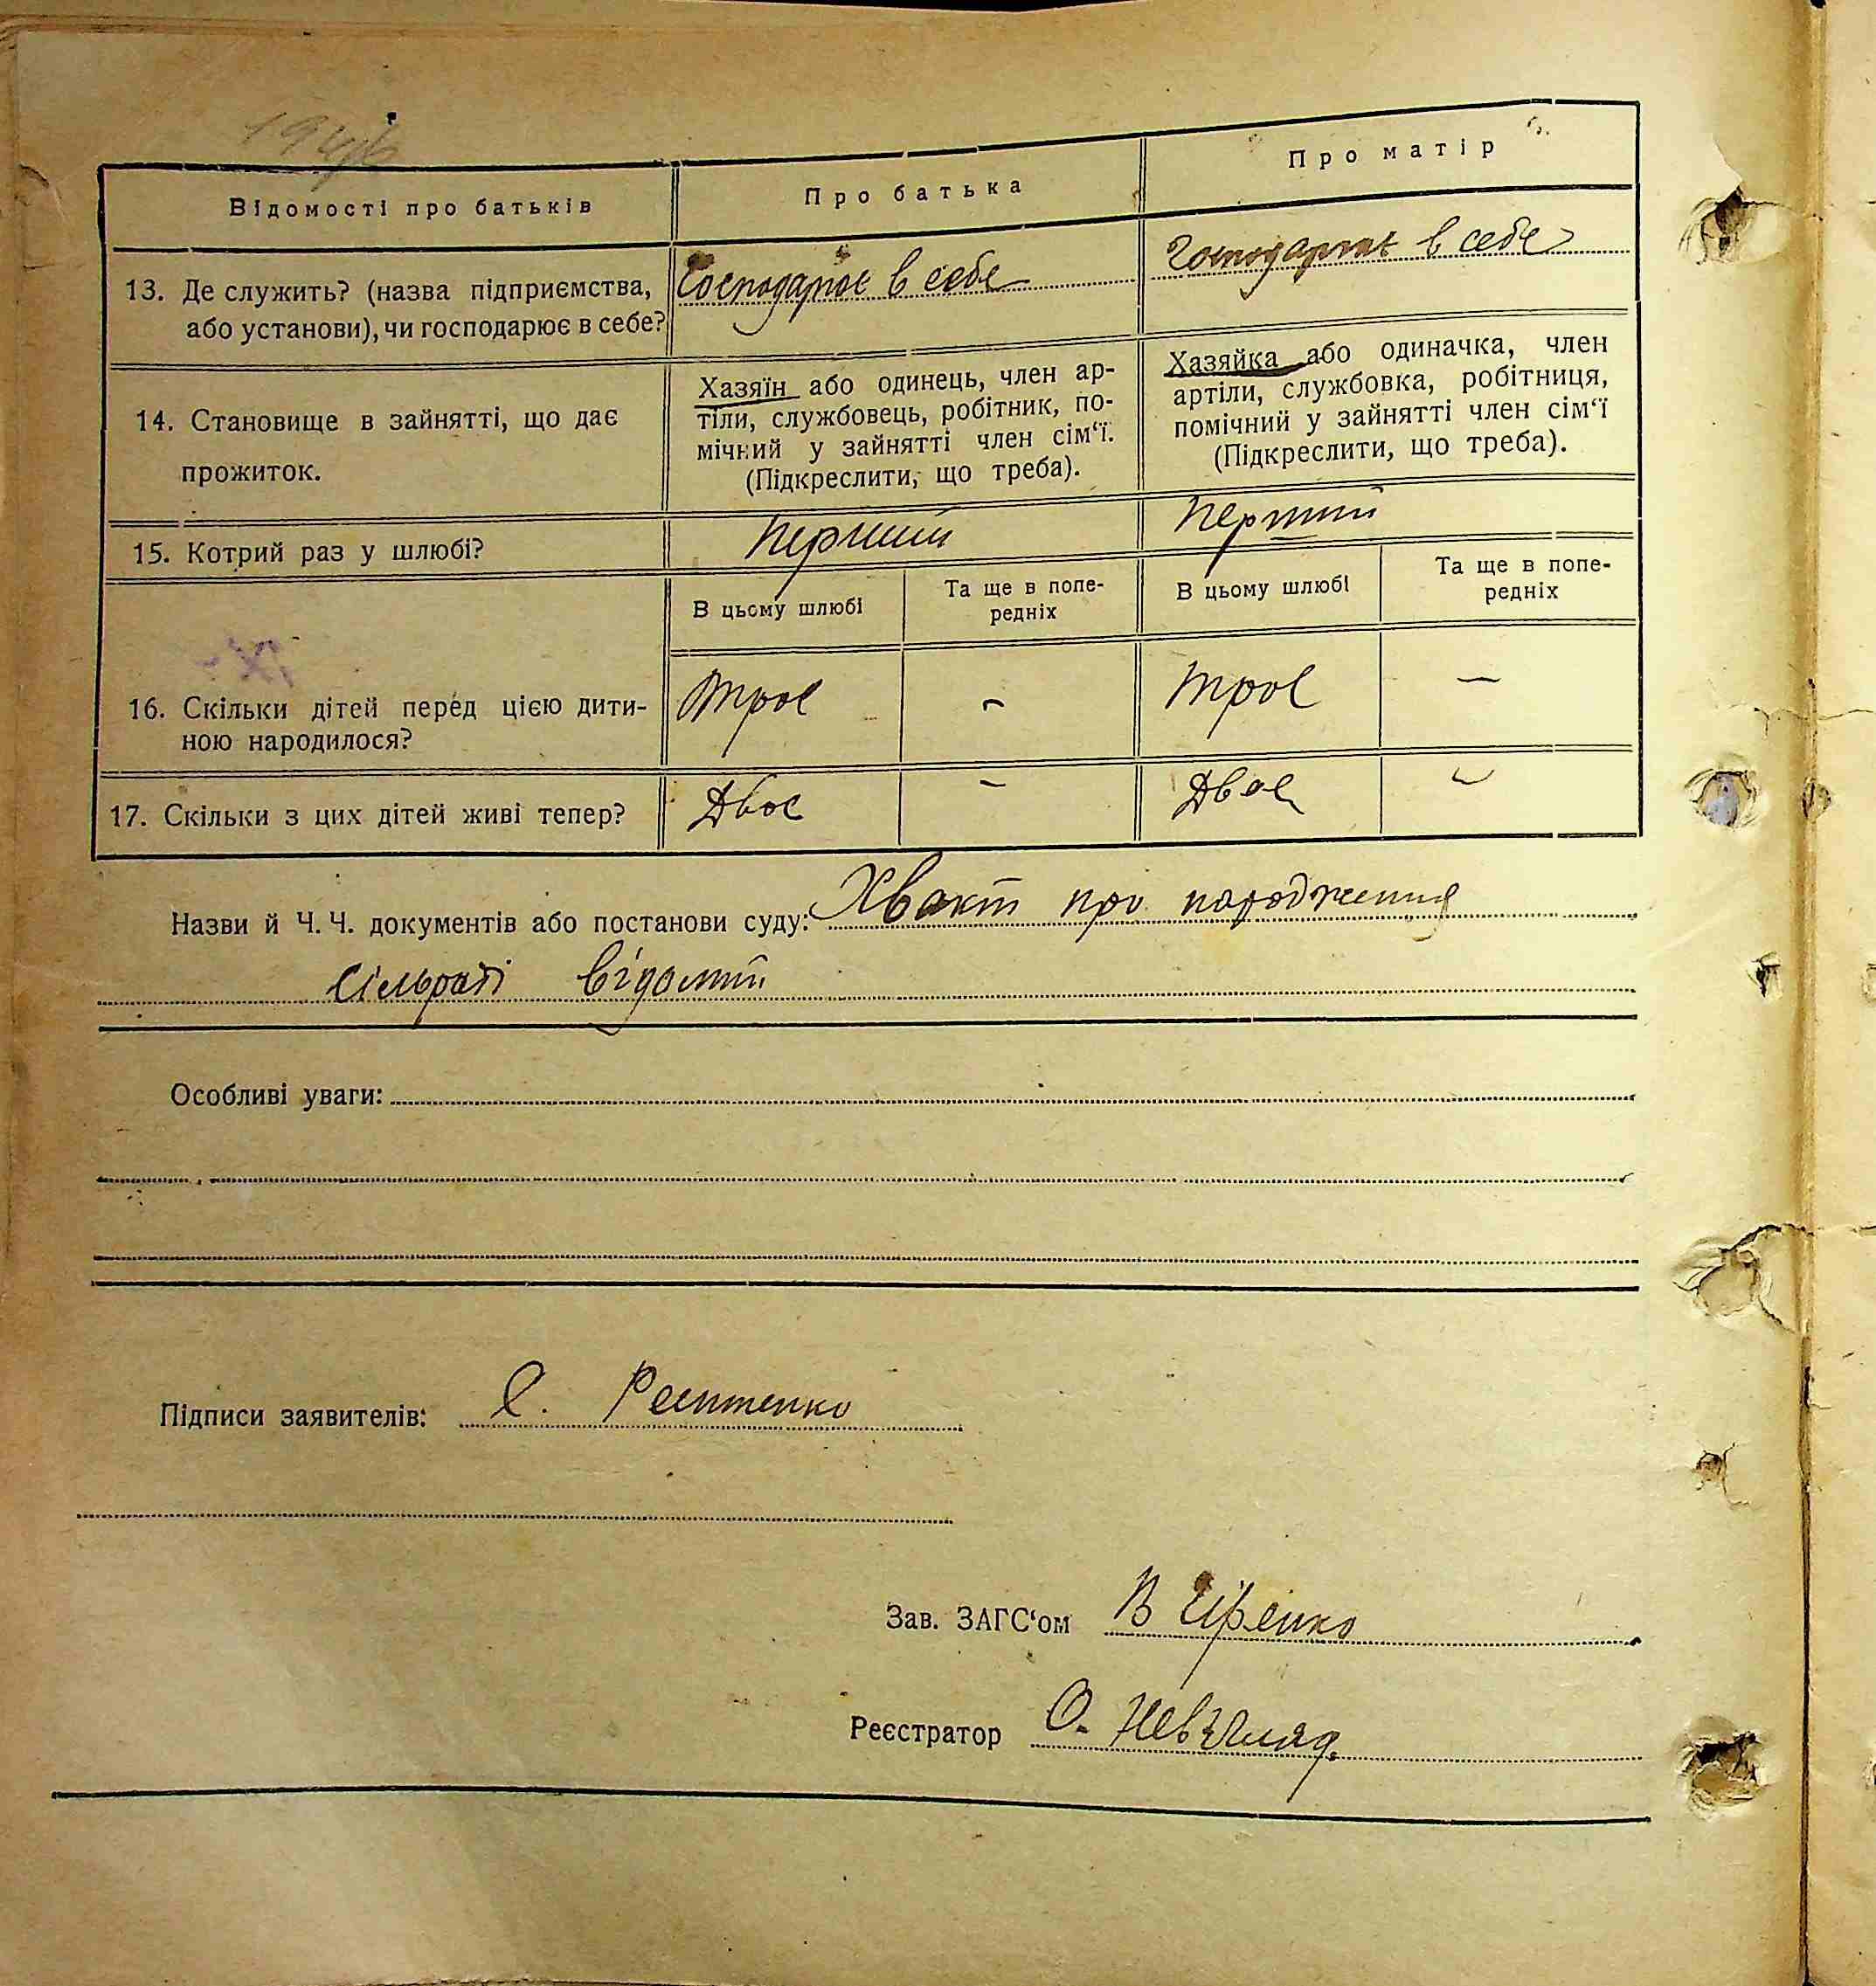 Відомості про батьків
Про батька
Про матір
13. Де служить? (назва підприємства,
або установи), чи господарює в себе?
Господарює в себе
Господарює в себе
14. Становище в зайнятті, що дає
прожиток.
Хазяїн або одинець, член ар-
тіли, службовець, робітник, по-
мічний у зайнятті член сім'ї.
(Підкреслити, що треба).
Хазяйка або одиначка, член
артіли, службовка, робітниця,
помічний у зайнятті член сім'ї
(Підкреслити, що треба).
15. Котрий раз у шлюбі?
перший
перший
В цьому шлюбі
Та ще в попе-
редніх
В цьому шлюбі
Та ще в попе-
редніх
16. Скільки дітей перед цією дити-
ною народилося?
троє
-
троє
-
17. Скільки з цих дітей живі тепер?
Двоє
-
Двоє
-
Назви й Ч. Ч. документів або постанови суду: Хвакт про народження
сільраді відомий
Особливі уваги:
Підписи заявителів:
Зав. ЗАГС'ом В
Реєстратор О.